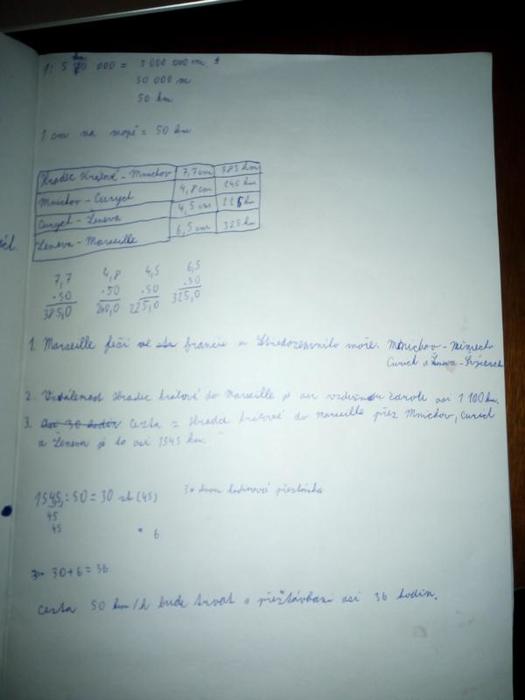 1: 5 000 000 = 5 000 000 cm
50 000 m
50 km
1 cm na mapě = 50 km
Hradec Králové - Mnichov 7,7 cm 385 km
Mnichov - Curych 4,8 cm 240 km
Curych - Ženeva 4,5 cm 225 km
Ženeva - Marseille 6,5 cm 325 km
7,7 4,8 4,5 6,5
.50 .50 .50 .50
385,0 240,0 225,0 325,0
1. Marseille leží ve Francii u Středozemního moře. Mnichov -
Curych a Ženeva -
2. Vzdálenost Hradec Králové do Marseille je asi vzdušnou čarou asi 1 100 km.
3. Asi 30 hodin Cesta z Hradce Králové do Marseille přes Mnichov, Curych
a Ženeva je to asi 1545 km.
1545 : 50 = 30 zb (45)
45
45
6
30 + 6 = 36
Cesta 50 km/h bude trvat s přestávkami asi 36 hodin.